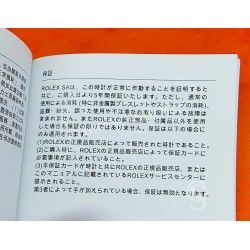 保証
ROLEX SAは、この時計が正常に作動することを証明すると共に、ご購入日より5年間保証いたします。ただし、通常の
使用による消耗(特に非金属製ブレスレットやストラップの消耗)、
盗難・紛失、誤った使用や不注意なお取り扱いによる故障は
含まれません。また、ROLEXの純正部品・付属品以外を使用
した場合も保証の限りではありません。保証は以下の場合に
のみ適用されます。
(1)ROLEXの正規品販売店によって販売された時計であること。
(2)ご購入時に、ROLEXの正規品販売店によって保証カードに
必要事項が記入されていること。
(3)本保証カードが時計と共にROLEXの正規品販売店、または
このマニュアルに記載されているROLEXサービスセンターに
提示されること。
第3者によって手が加えられている場合、保証は無効となります。